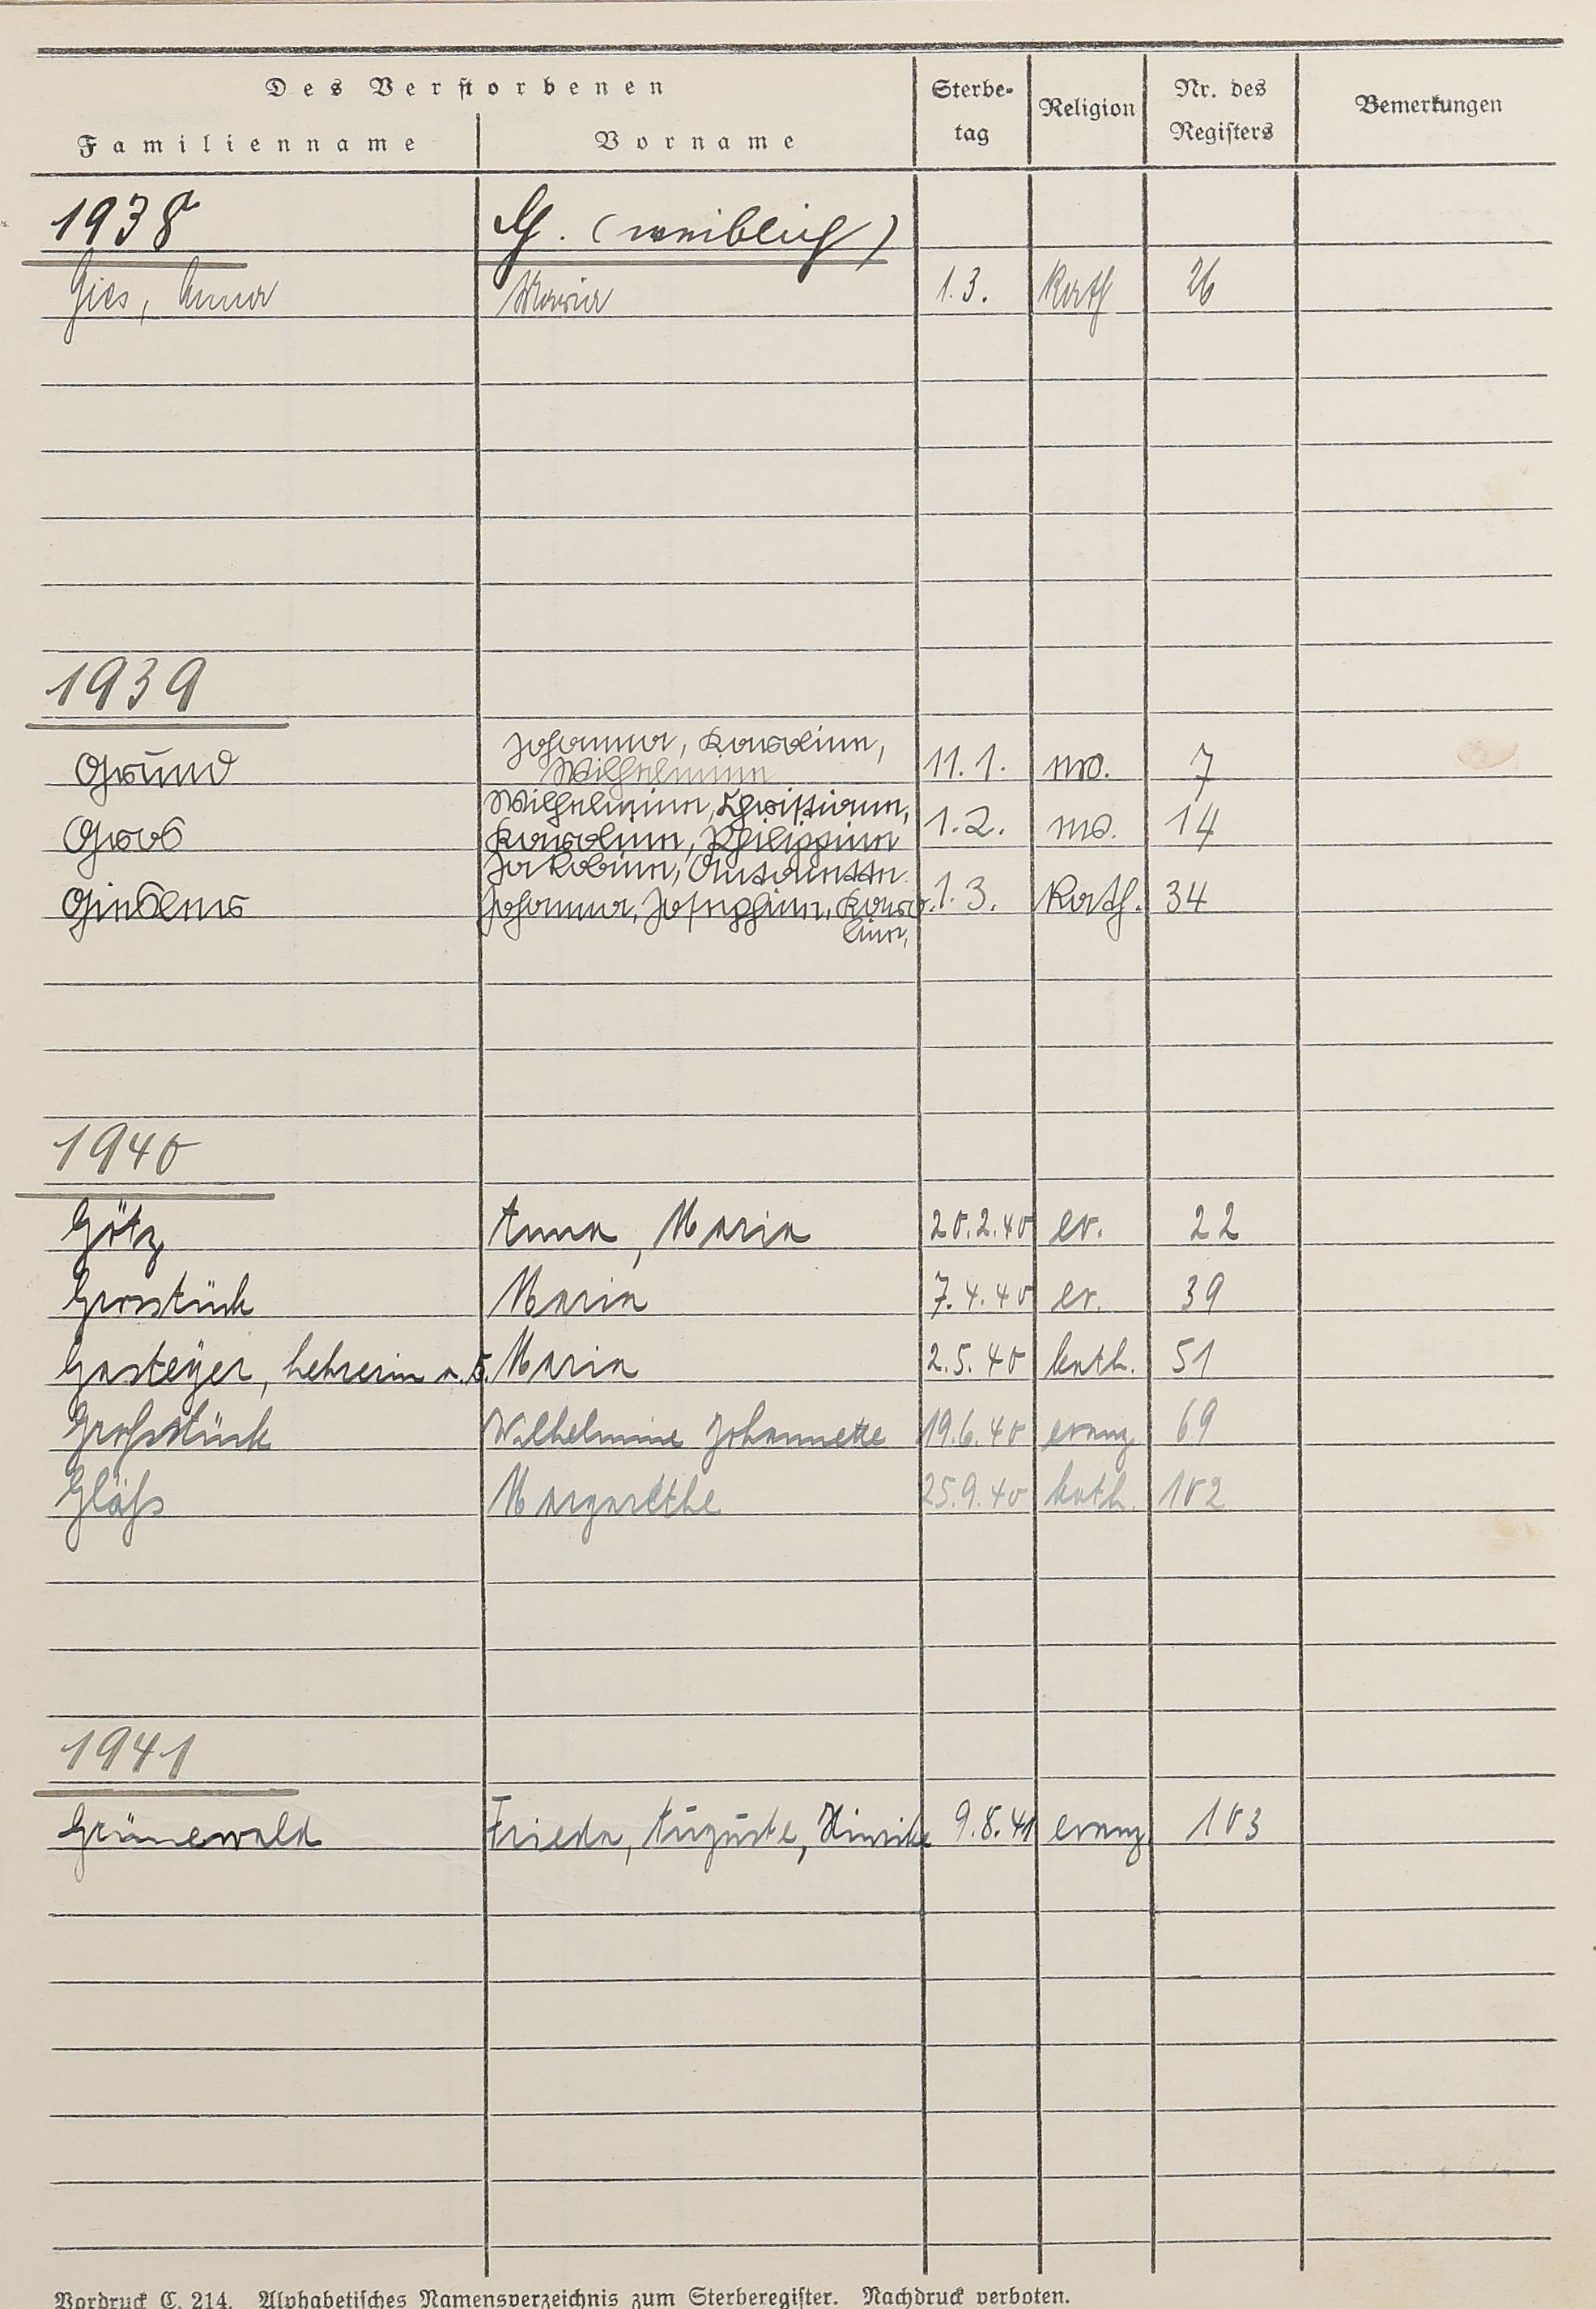 Des Verstorbenen
Familienname Vorname Sterbe-
tag Religion Nr. des
Registers Bemerkungen
1938 G. (weiblich)
Gies, Anna Maria 1.3. Kath 26
1939
Johanna, Karoline,
Grund Wilhelmine 11.1. ev. 7
Wilhelmine, Christiane,
Gros Karoline, Philippine 1.2. ev. 14
Jakobine, Antonette
Johanna, Josephine, Karo- 1.3. Kath. 34
line,
1940
Götz Anna, Maria 20.2.40 ev. 22
Grosstück Maria 7.4.40 ev. 39
Gasteyer, Lehrerin a.D. Maria 2.5.40 kath. 51
Großstück Wilhelmine Johannette 19.6.40 evang 69
Gläß Margarethe 25.9.40 kath. 102
1941
Grünewald Frieda, Auguste, Hinrike 9.8.41 evang 103
Vordruck C. 214. Alphabetisches Namensverzeichnis zum Sterberegister. Nachdruck verboten.